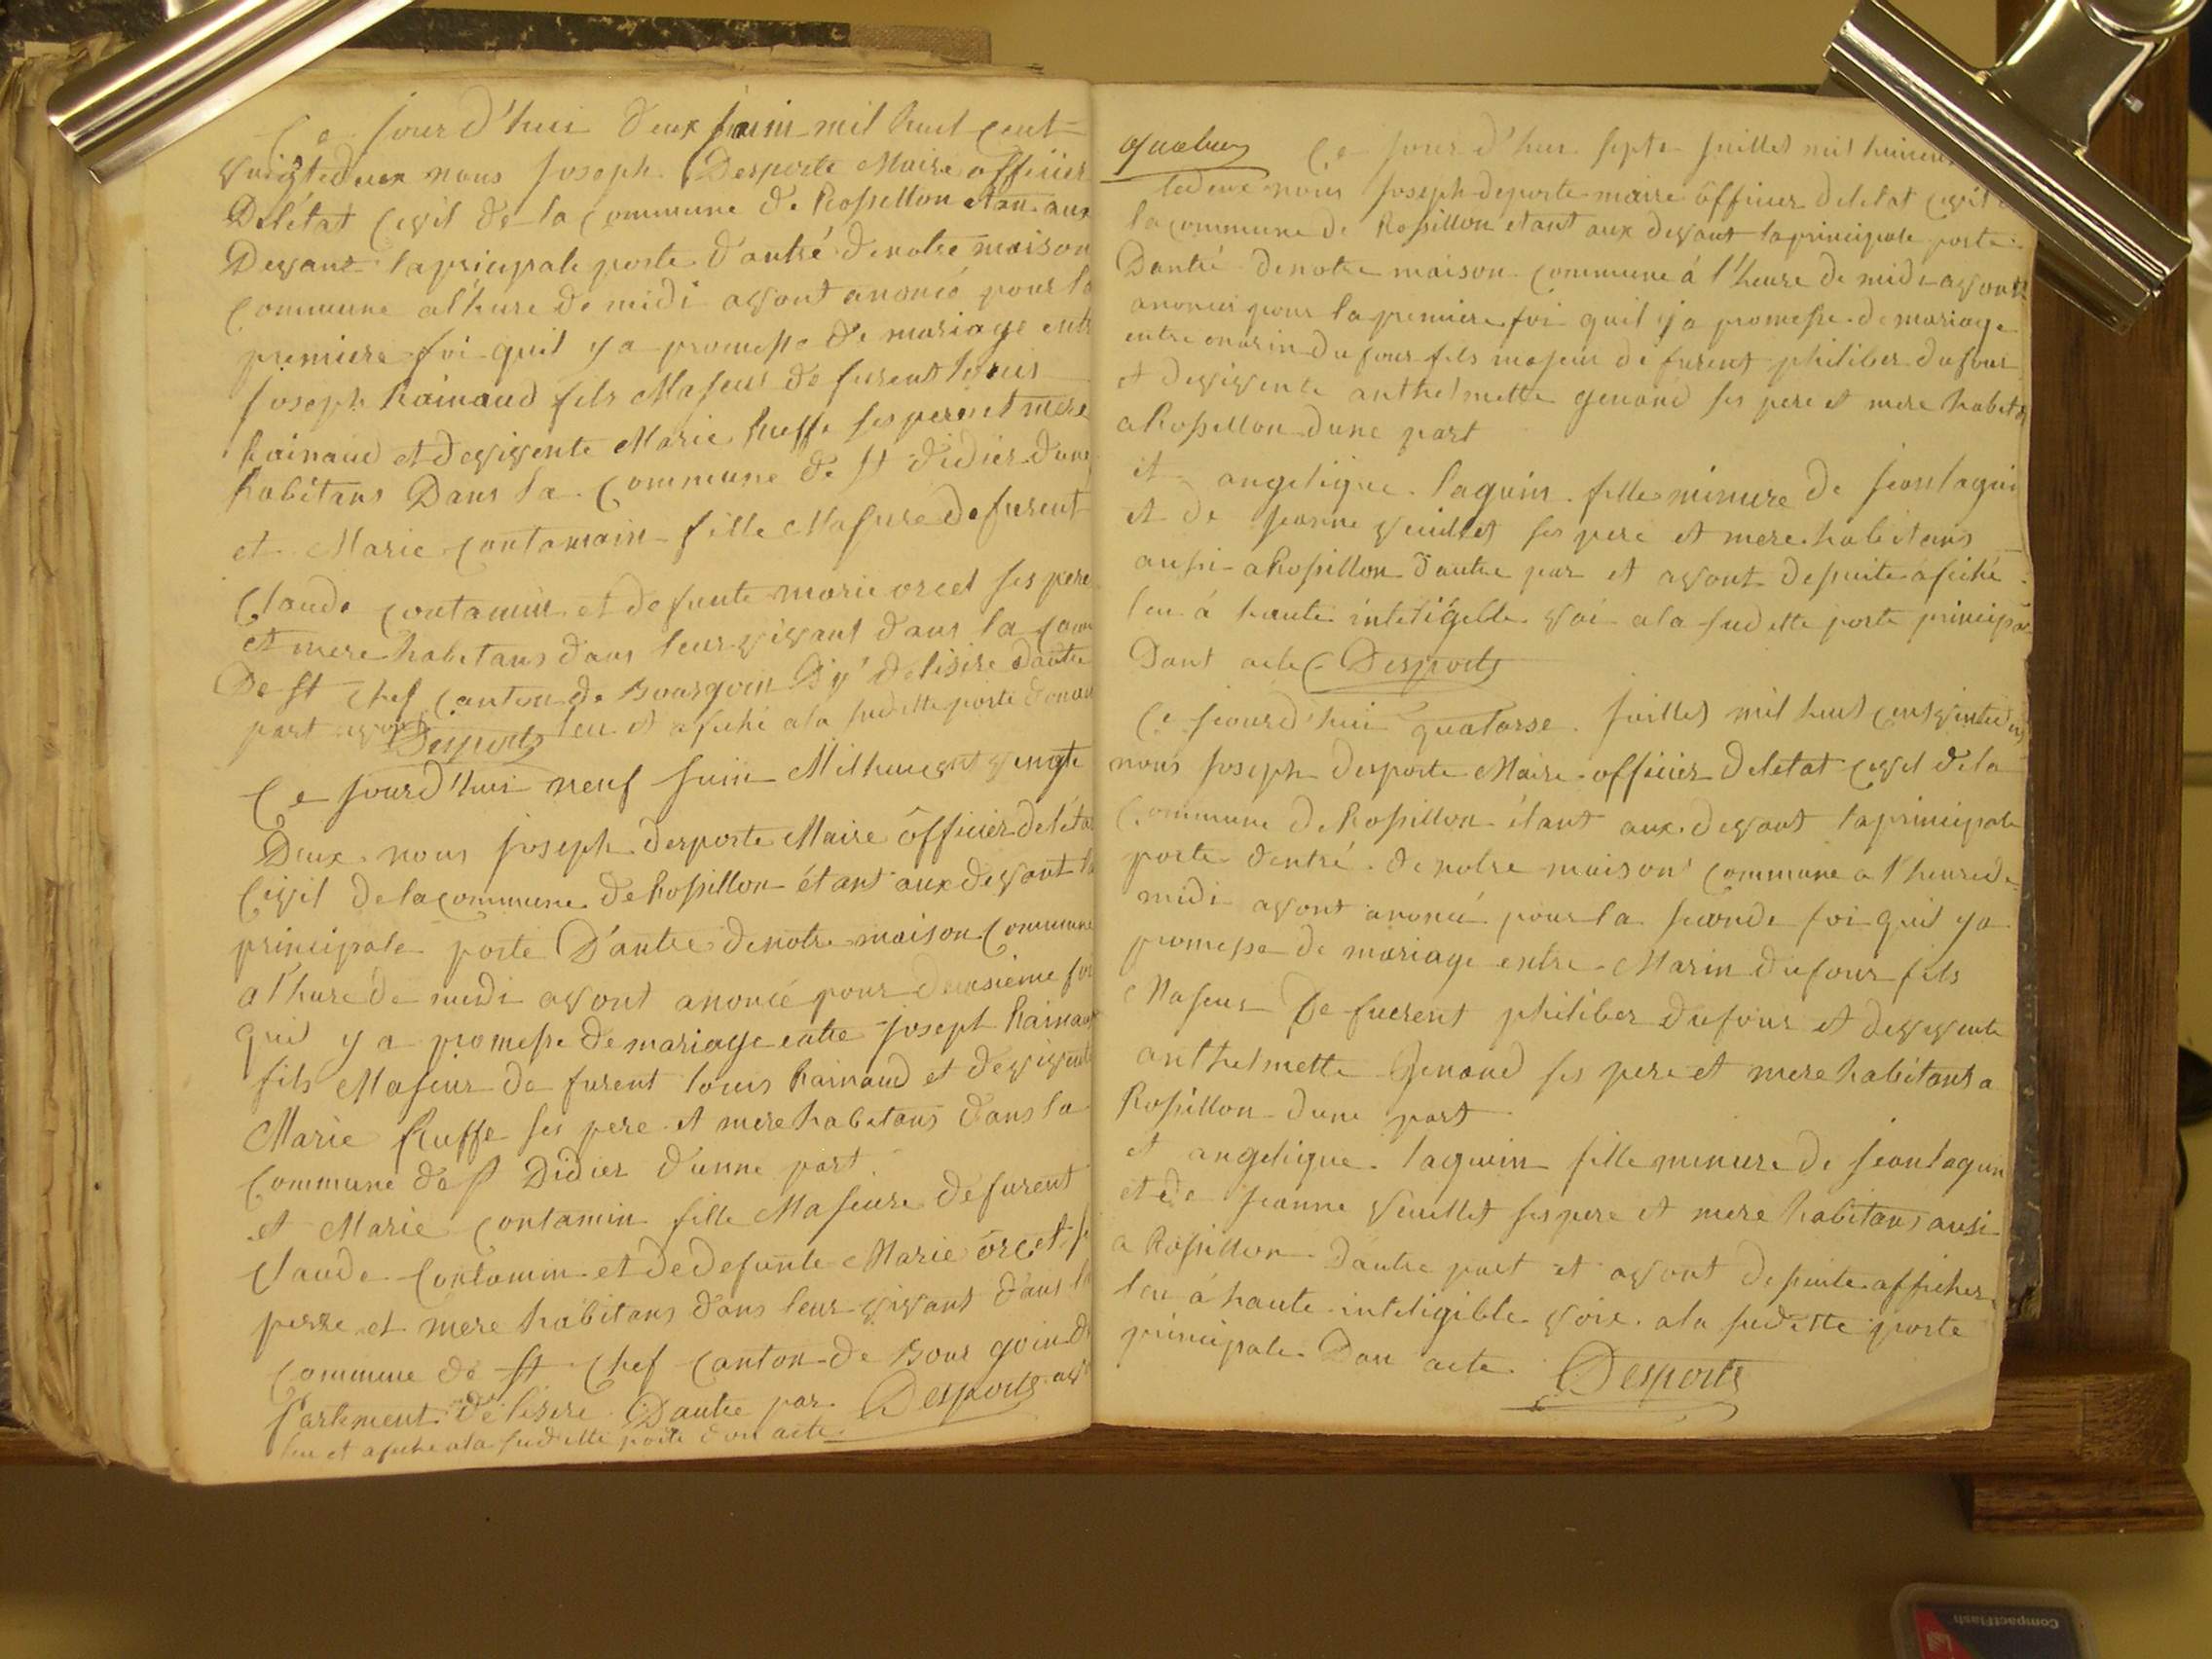 Ce jourd'hui deux juin mil huit cent
vuigtedeux nous joseph Desporte Maire officier
Delétat Civil de la Commune de Rossillon etan aux
Devant lapricipale porte d'antré denotre maison
Commune alhure de midi avont anoncé pour la
premiere foi quil ya promesse de mariage entr
joseph Rainaud fils Majeur de furent louis
Rainaud et devivente Marie Ruffe ses pere et mere
habitans Dans la Commune de st didier dune
et Marie contamain fille Majure defurent
Claude contamin et defunte marie orcet ses pere
et mere habitans dans leur vivant dans la com
De st Chef canton de Bourgoin Dp' delisire dautre
part avont leu et afiché ala sudette porte donau
Desports
Ce jourd'hui neuf juin Milhuicent vingte
Deux nous joseph desporte Maire officier delétat
Civil delacommune de Rossillon étant auxdevant la
principale porte D'antre denotre maison Commune
a l'hure de midi avont anoncé pour deusieme foi
quil y a promesse demariage entre joseph Rainaud
fils Majeur de furent louis Rainaud et devivente
Marie Ruffe ses pere et mere habitans dans la
Commune de st Didier d'unne part
et Marie contamin fille Majeure defurent
Claude Contamin et dedefunte Marie orcet s
perre et mere habitans dans leur vivant dans la
Commune de st Chef canton de Bour goin d
partement de lisere Dautre par Desports av
leu et afiche ala sudette porte don acte
Ce jour d'hui sept juillet mil huicen
tedeux nous joseph deporte maire officier deletat civil d
la commune de Rossillon etant aux devant laprincipale porte
Dantré denotre maison commune à l'heure de midi avont
anoncer pour la premiere foi quil ya promesse demariage
entre marin dufour fils majeur de furent philiber dufour
et devivente anthelmette genaud ses pere et mere habitan
a Rossillon dune part
et angelique laguin fille minure de jean laguin
et de jeanne vuillet ses pere et mere habitans
aussi a Rossillon d'autre par et avont desuite afiché
leu à haute inteligeble voi ala sudette porte principal
Dont acte Desports
Ce jourd'hui quatorse juillet mil huit centvintedeux
nous joseph desporte Maire officier deletat civil dela
Commune de Rossillon étant aux devant laprincipale
porte dentré de notre maison commune a l'heurede
midi avont anoncé pour la seconde foi quil ya
promesse de mariage entre Marin dufour fils
Majeur De fuerent philiber dufour et devivente
anthelmette Genaud ses pere et mere habitans a
Rossillon dune part
et angelique laguin fille minure de jean laguin
et de jeanne vuillet ses pere et mere habitans ausi
a Rossillon dautre part et avont desuite afficher
leu à haute inteligible voix ala sudette porte
principale Don acte Desports
CompactFlash